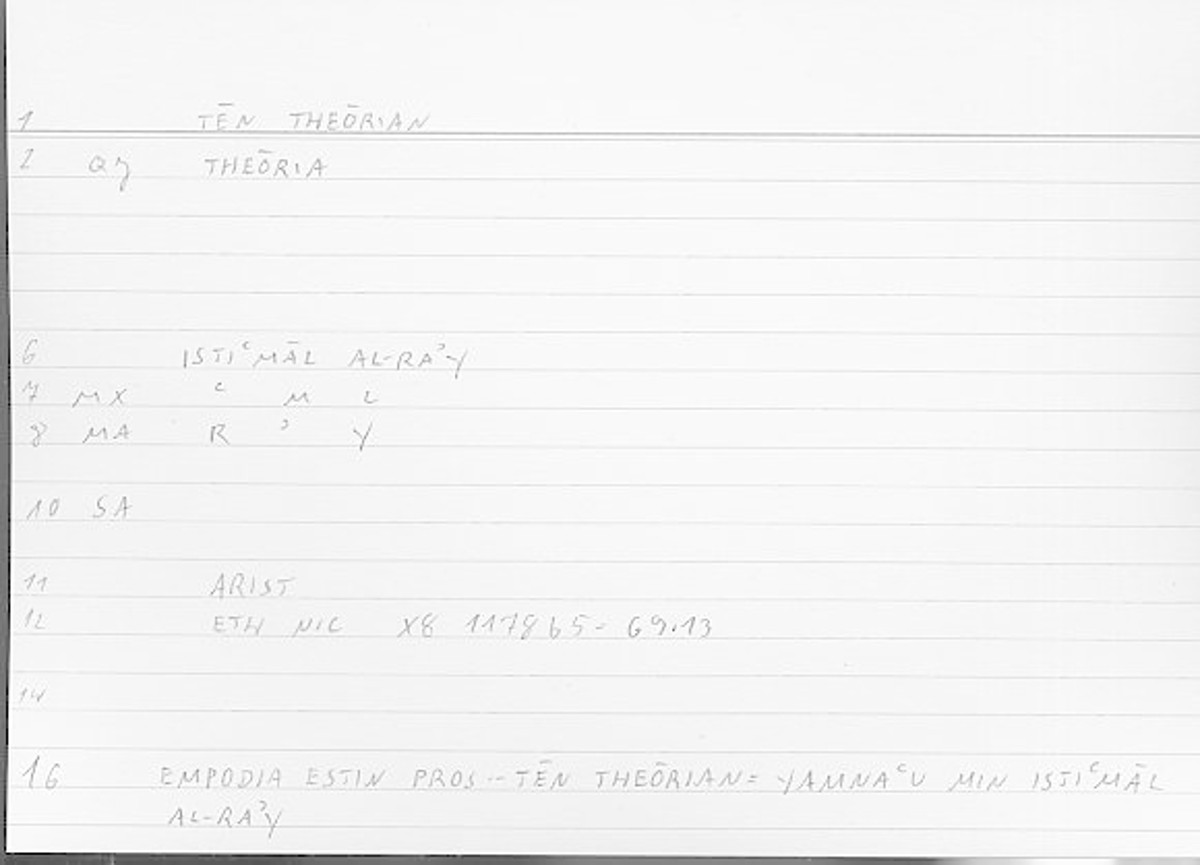 1 TĒN THEŌRIAN
2 QZ THEŌRIA
6 ISTIʿMĀL AL-RAʾY
7 MX ʿ M L
8 MA R ʾ Y
10 SA
11 ARIST
12 ETH NIC X8 1178b5- 69.13
14
16 EMPODIA ESTIN PROS--TĒN THEŌRIAN= YAMNAʿU MIN ISTIʿMĀL
AL-RAʾY